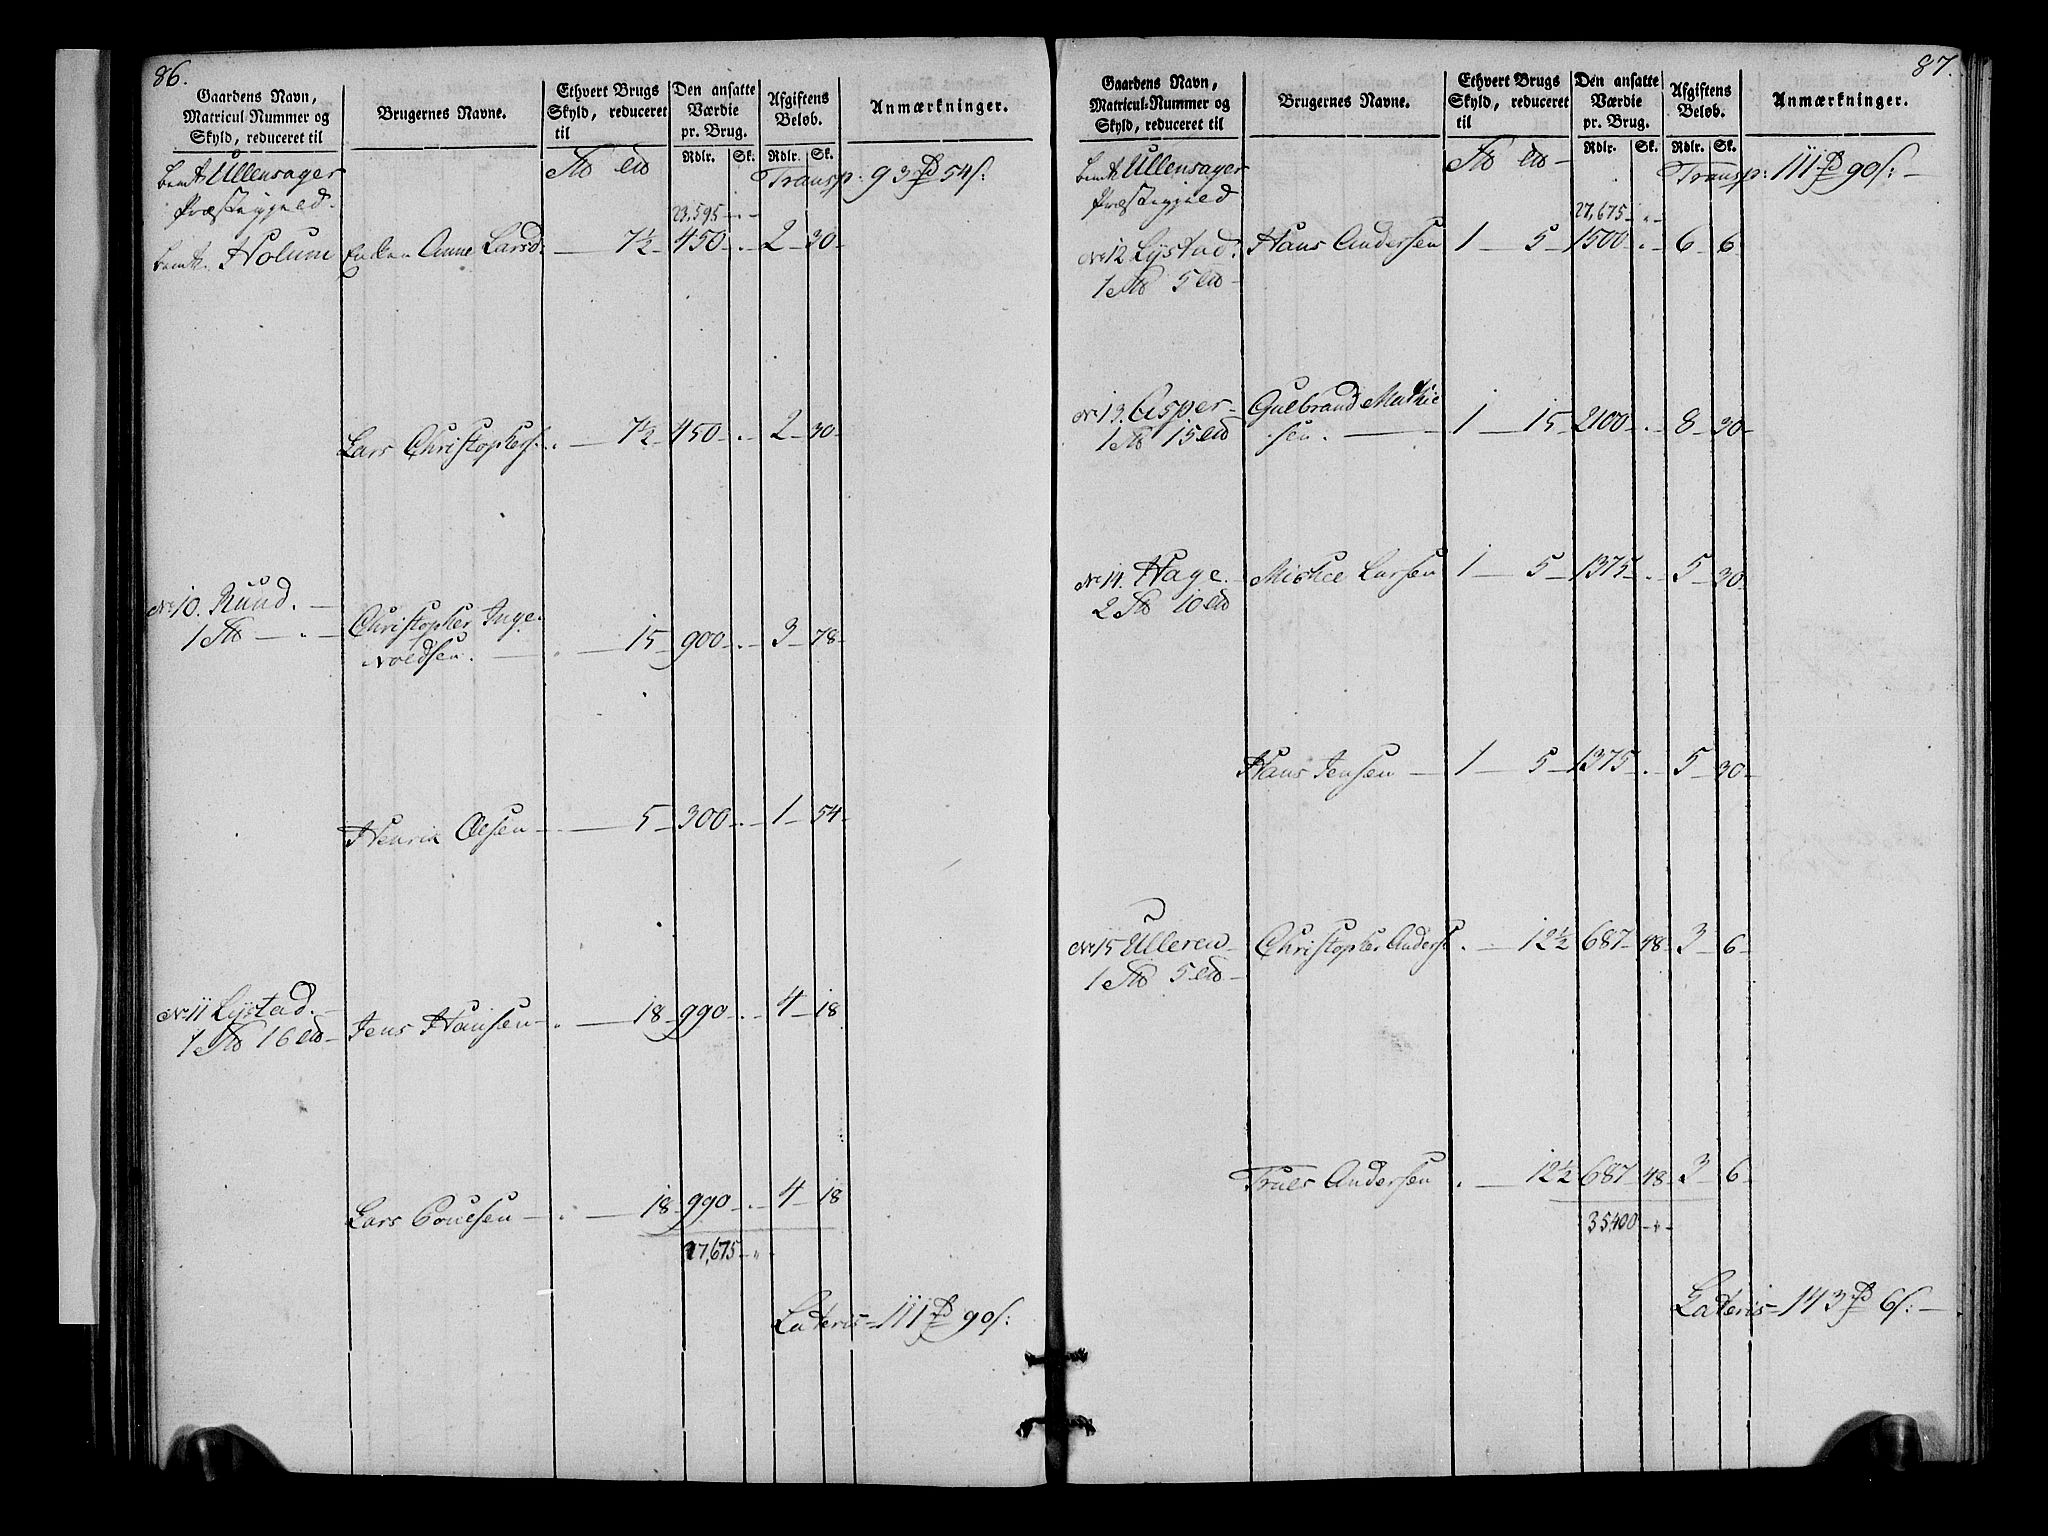 86.
Gaardens Navn, Matricul Nummer og Skyld, reduceret til
Brugernes Navne.
Ethvert Brugs Skyld, reduceret til
Den ansatte Værdie pr. Brug.
Afgiftens Beløb.
Anmærkninger.
Rdlr. Sk. Rdlr. Sk.
Ullensager
Præstegjeld.
Transp: 93 54 s:
23,595 - " -
Holum Enken Anne Larsd. — 7½ 450 - . - 2 - 30 -
Lars Christophers. . — 7½ 450 - . - 2 - 30 -
No 10. Ruud. -
1
Christopher Inge-
voldsen. — . — 15 - 900 - . - 3 - 78 -
Henrik Olsen — 5 - 300 - . - 1 - 54 -
No 11 Lystad. -
1 16
Jens Hansen - . — 18 - 990 - . - 4 - 18
Lars Povelsen - . — 18 - 990 - . - 4 - 18
27,675 - "
Lateris - 111 90 s:
87.
Gaardens Navn, Matricul-Nummer og Skyld, reduceret til
Brugernes Navne.
Ethvert Brugs Skyld, reduceret til
Den ansatte Værdie pr. Brug.
Afgiftens Beløb.
Anmærkninger.
Rdlr. Sk. Rdlr. Sk.
Ullensager
Præstegjeld
Transp: 111 90 s: -
27,675 - " -
No 12 Lystad. Hans Andersen 1 — 5 - 1500 - . - 6 - 6 -
1 5
No 13. Asper - Gulbrand Mathie
1 15 sen. — 1 — 15 - 2100 - . - 8 - 30 -
No 14. Hage. Michel Larsen 1 — 5 - 1375 - . - 5 - 30
2 10
Hans Jensen — 1 — 5 - 1375 - . - 5 - 30 -
No 15 Ulleren - Christopher Anders . - 12½ 687 - 48 - 3 - 6 -
1 5
Truls Andersen . — 12½ 687 48 - 3 - 6
35,400 - " -
Lateris - 143 6 s: -